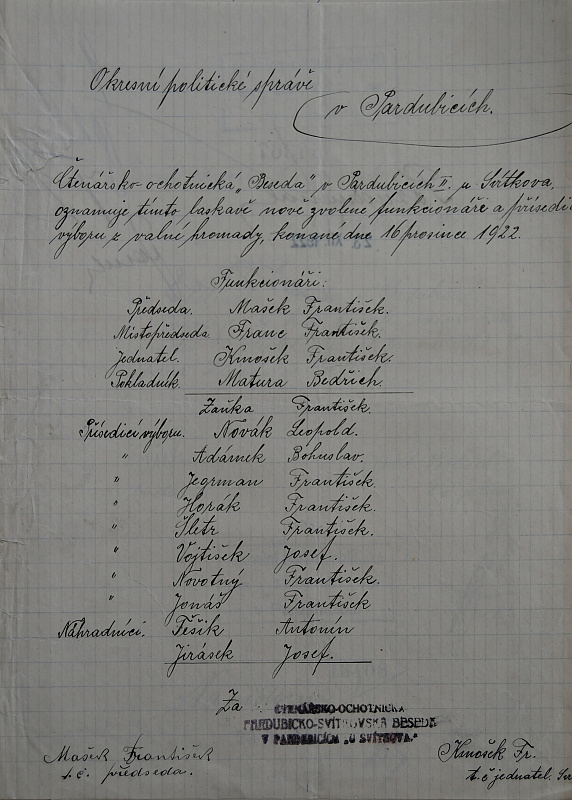 Okresní politické správě
v Pardubicích.
Čtenářsko-ochotnická „Beseda" v Pardubicích II. u Svítkova,
oznamuje tímto laskavě nově zvolené funkcionáře a přísedící
výboru z valní hromady, konané dne 16 prosince 1922.
Funkcionáři:
Předseda. Mašek František.
Místopředseda. Franc František.
Jednatel. Kmošek František.
Pokladník. Matura Bedřich.
Zaňka František.
Přísedící výboru. Novák Leopold.
" Adámek Bohuslav.
" Jegrman František.
" Horák František.
" Šletr František.
" Vojtíšek Josef.
" Novotný František.
" Jonáš František
Náhradníci. Těšík Antonín
Jirásek Josef.
Za ČTENÁŘSKO-OCHOTNICKÁ
PARDUBICKO-SVÍTKOVSKÁ BESEDA
V PARDUBICÍCH „U SVÍTKOVA."
Mašek František
t.č. předseda.
Kmošek Fr.
t.č jednatel.